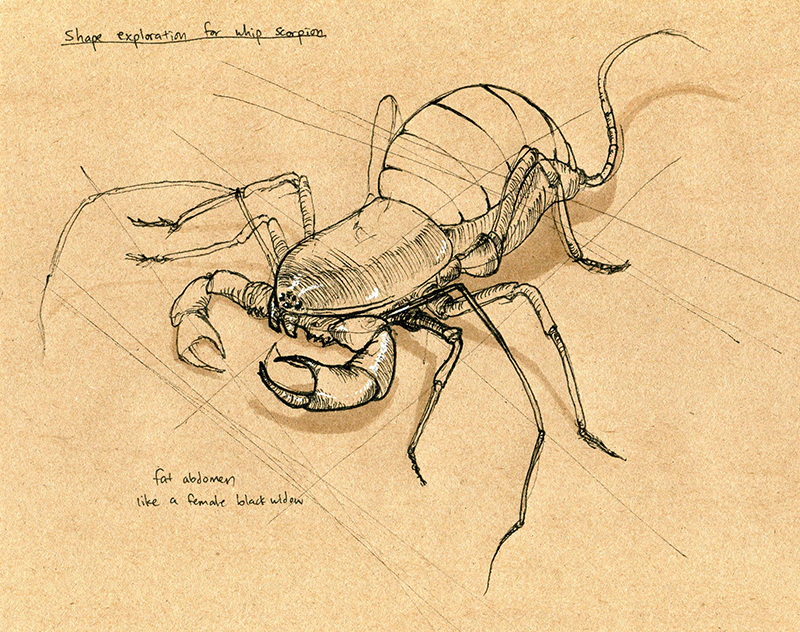 Shape exploration for whip scorpion
fat abdomen
like a female black widow